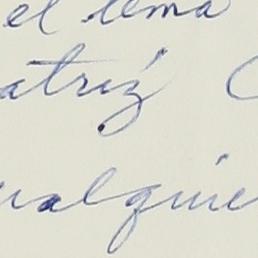 el tema
atriz
ualquie